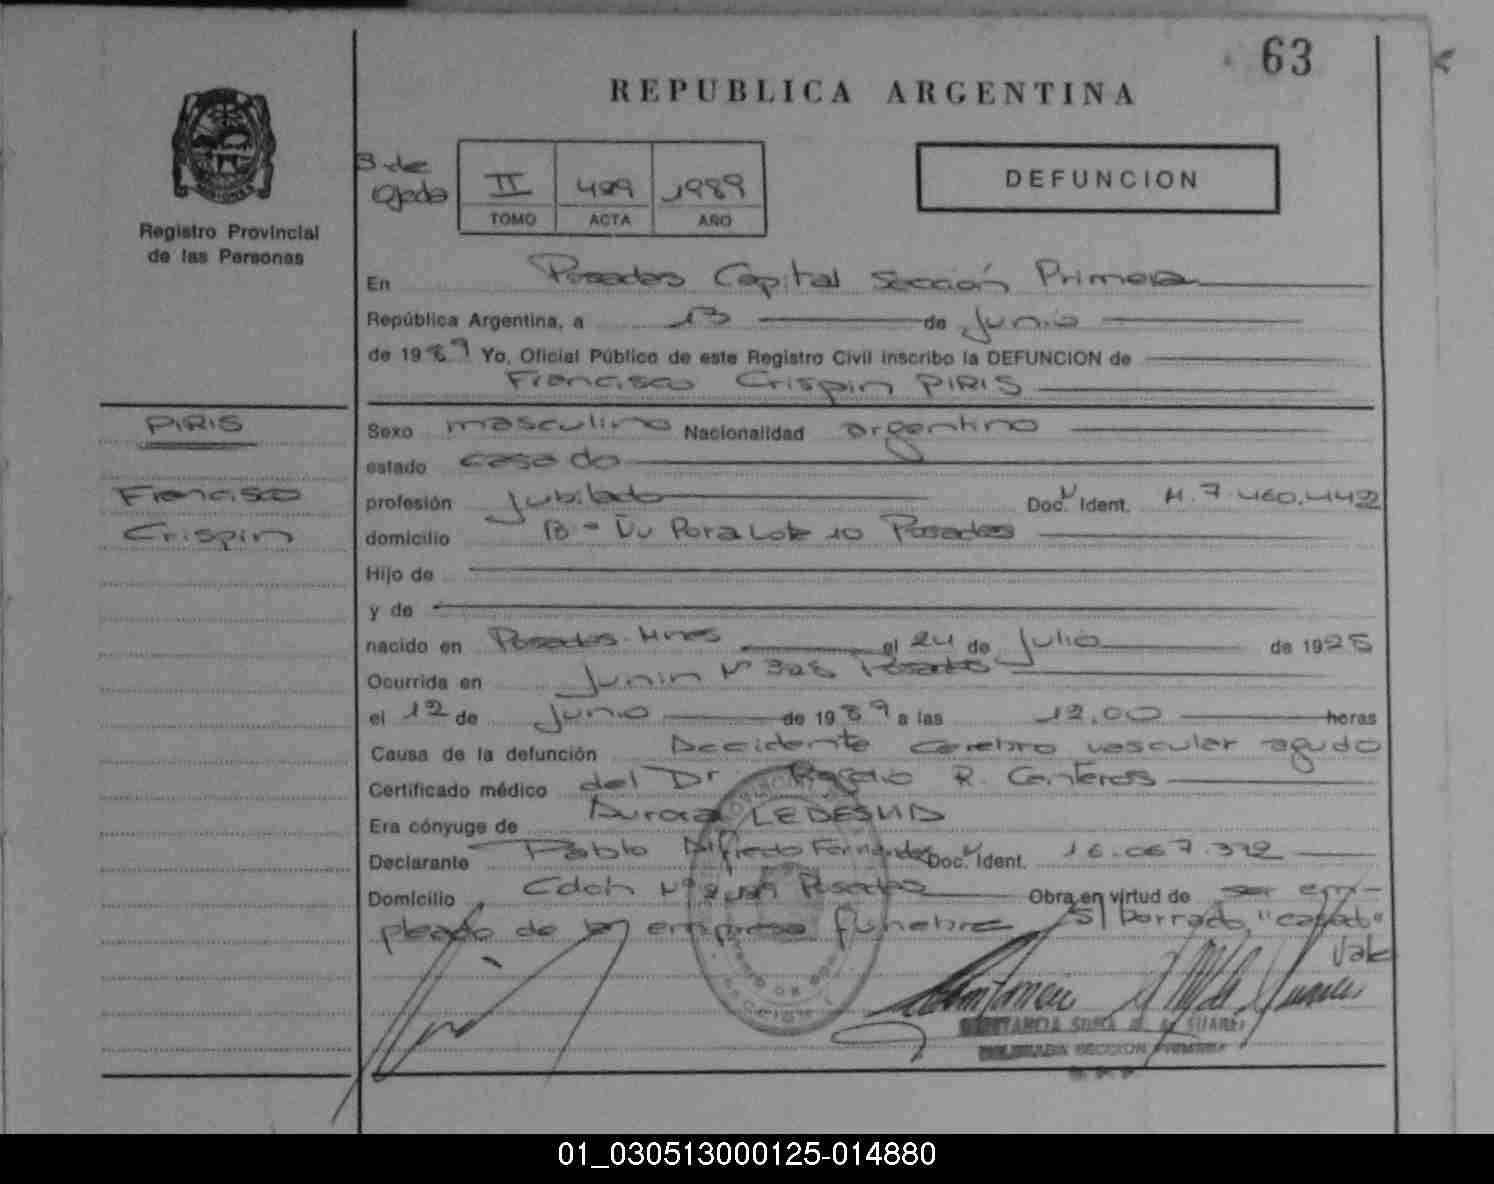 63
REPUBLICA ARGENTINA
B de
Ojeda
II 489 1989
TOMO ACTA AÑO
DEFUNCION
Registro Provincial
de las Personas
En Posadas Capital Sección Primera
República Argentina, a 13 de Junio
de 1989 Yo, Oficial Público de este Registro Civil inscribo la DEFUNCION de
Francisco Crispin PIRIS
PIRIS
Francisco
Crispin
Sexo masculino Nacionalidad argentino
estado casado
profesión Jubilado Doc. N Ident. M. 7.460.442
domicilio B - Ũu Pora Lote 10 Posadas
Hijo de
y de
nacido en Posadas. Mnes el 24 de Julio de 1925
Ocurrida en Junin Nº 328 Posadas
el 12 de Junio de 1989 a las 12,00 horas
Causa de la defunción Accidente cerebro vascular agudo
Certificado médico del Dr R. Canteros
Era cónyuge de Aurora LEDESMA
Declarante Pablo Alfredo Fernandez Doc. N Ident. 16.067.372
Domicilio Nº Posadas Obra en virtud de ser em-
pleado de la empresa fúnebre S/ borrado "casado"
Vale
CONSTANCIA SUAREZ
DELEGADA SECCION PRIMERA
01_030513000125-014880